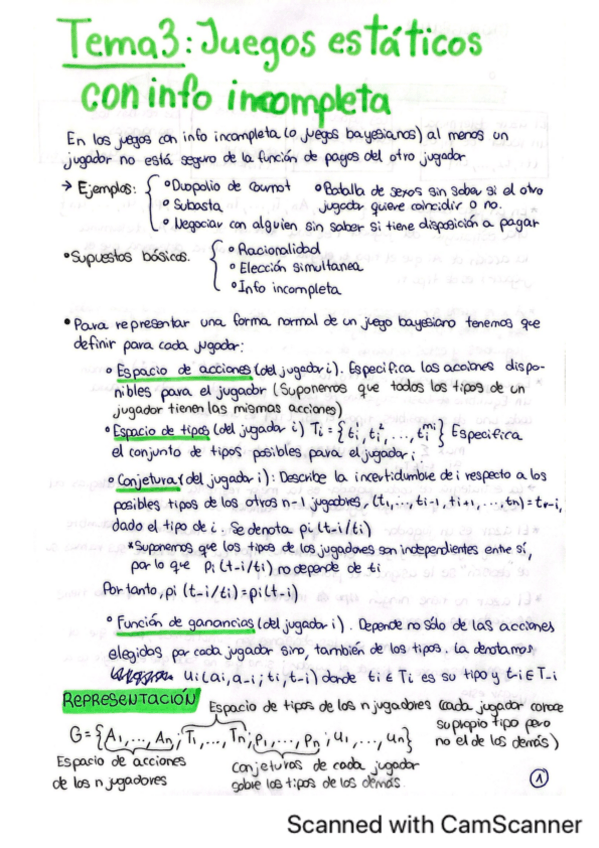 Tema 3: Juegos estáticos
con info incompleta
En los juegos con info incompleta (o juegos bayesianos) al menos un
jugador no está seguro de la función de pagos del otro jugador
→ Ejemplos:
° Duopolio de Cournot
° Subasta
° Negociar con alguien sin saber si tiene disposición a pagar
° Batalla de sexos sin saber si el otro
jugador quiere coincidir o no.
• Supuestos básicos.
° Racionalidad
° Elección simultanea
° Info incompleta
• Para representar una forma normal de un juego bayesiano tenemos que
definir para cada jugador:
° Espacio de acciones (del jugador i). Especifica las acciones dispo-
nibles para el jugador (Suponemos que todos los tipos de un
jugador tienen las mismas acciones)
° Espacio de tipos (del jugador i) Ti = {ti¹, ti², ..., ti^mi} Especifica
el conjunto de tipos posibles para el jugador i
° Conjetura (del jugador i): Describe la incertidumbie de i respecto a los
posibles tipos de los otros n-1 jugadores, (t1, ..., ti-1, ti+1, ..., tn) = t-i,
dado el tipo de i. Se denota pi (t-i/ti)
* Suponemos que los tipos de los jugadores son independientes entre sí,
por lo que Pi (t-i/ti) no depende de ti
Por tanto, pi (t-i/ti) = pi(t-i)
° Función de ganancias (del jugador i). Depende no sólo de las acciones
elegidas por cada jugador sino, también de los tipos. La denotamos
Ui (ai, a-i; ti, t-i) donde ti ∈ Ti es su tipo y t-i ∈ T-i
REPRESENTACIÓN
Espacio de tipos de los n jugadores (cada jugador conoce
su propio tipo pero
no el de los demás)
G = {A1, ..., An; T1, ..., Tn; p1, ..., pn; u1, ..., un}
Espacio de acciones
de los n jugadores
conjeturas de cada jugador
sobre los tipos de los demás
1
Scanned with CamScanner